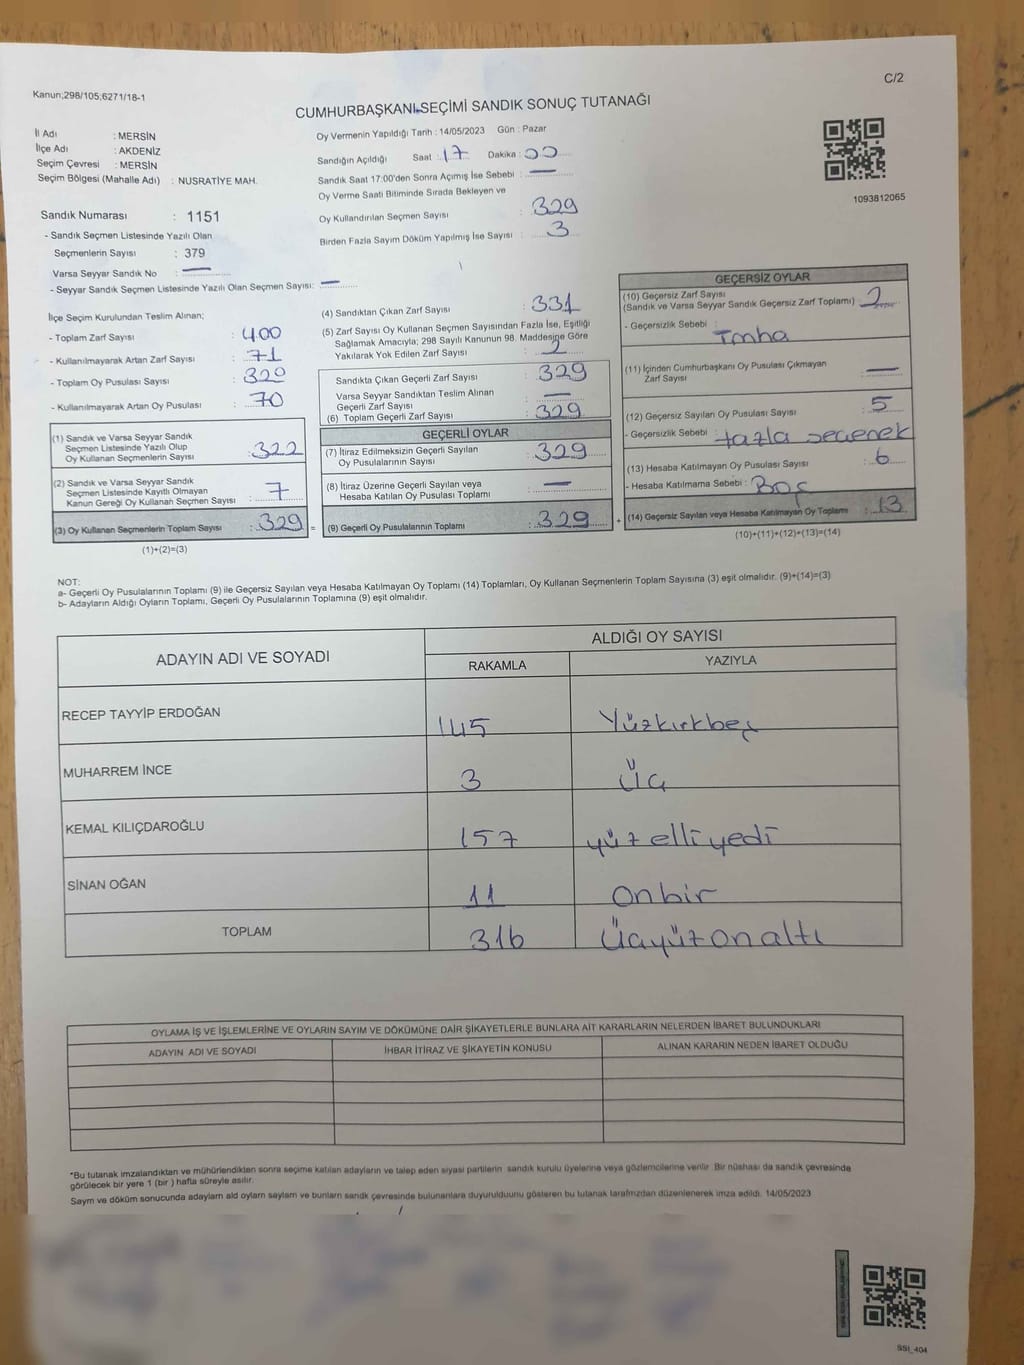 C/2
Kanun;298/105;6271/18-1
CUMHURBAŞKANI SEÇİMİ SANDIK SONUÇ TUTANAĞI
İl Adı : MERSİN
İlçe Adı : AKDENİZ
Seçim Çevresi : MERSİN
Seçim Bölgesi (Mahalle Adı) : NUSRATİYE MAH.
Oy Vermenin Yapıldığı Tarih : 14/05/2023 Gün : Pazar
Sandığın Açıldığı Saat : 17 Dakika : 00
Sandık Saat 17:00'den Sonra Açımış İse Sebebi : —
Oy Verme Saati Bitiminde Sırada Bekleyen ve
Oy Kullandırılan Seçmen Sayısı : 329
Birden Fazla Sayım Döküm Yapılmış İse Sayısı : 3
1093812065
Sandık Numarası : 1151
- Sandık Seçmen Listesinde Yazılı Olan
Seçmenlerin Sayısı : 379
Varsa Seyyar Sandık No : —
- Seyyar Sandık Seçmen Listesinde Yazılı Olan Seçmen Sayısı: —
İlçe Seçim Kurulundan Teslim Alınan;
- Toplam Zarf Sayısı : 400
- Kullanılmayarak Artan Zarf Sayısı : 71
- Toplam Oy Pusulası Sayısı : 320
- Kullanılmayarak Artan Oy Pusulası : 70
(1) Sandık ve Varsa Seyyar Sandık
Seçmen Listesinde Yazılı Olup
Oy Kullanan Seçmenlerin Sayısı : 322
(2) Sandık ve Varsa Seyyar Sandık
Seçmen Listesinde Kayıtlı Olmayan
Kanun Gereği Oy Kullanan Seçmen Sayısı : 7
(3) Oy Kullanan Seçmenlerin Toplam Sayısı : 329 =
(1)+(2)=(3)
(4) Sandıktan Çıkan Zarf Sayısı : 331
(5) Zarf Sayısı Oy Kullanan Seçmen Sayısından Fazla İse, Eşitliği
Sağlamak Amacıyla; 298 Sayılı Kanunun 98. Maddesine Göre
Yakılarak Yok Edilen Zarf Sayısı : 2
Sandıkta Çıkan Geçerli Zarf Sayısı : 329
Varsa Seyyar Sandıktan Teslim Alınan
Geçerli Zarf Sayısı : —
(6) Toplam Geçerli Zarf Sayısı : 329
GEÇERLİ OYLAR
(7) İtiraz Edilmeksizin Geçerli Sayılan
Oy Pusulalarının Sayısı : 329
(8) İtiraz Üzerine Geçerli Sayılan veya
Hesaba Katılan Oy Pusulası Toplamı : —
(9) Geçerli Oy Pusulalarının Toplamı : 329 +
GEÇERSİZ OYLAR
(10) Geçersiz Zarf Sayısı
(Sandık ve Varsa Seyyar Sandık Geçersiz Zarf Toplamı) : 2
- Geçersizlik Sebebi : İmha
(11) İçinden Cumhurbaşkanı Oy Pusulası Çıkmayan
Zarf Sayısı : —
(12) Geçersiz Sayılan Oy Pusulası Sayısı : 5
- Geçersizlik Sebebi : fazla seçenek
(13) Hesaba Katılmayan Oy Pusulası Sayısı : 6
- Hesaba Katılmama Sebebi : Boş
(14) Geçersiz Sayılan veya Hesaba Katılmayan Oy Toplamı : 13
(10)+(11)+(12)+(13)=(14)
NOT:
a- Geçerli Oy Pusulalarının Toplamı (9) ile Geçersiz Sayılan veya Hesaba Katılmayan Oy Toplamı (14) Toplamları, Oy Kullanan Seçmenlerin Toplam Sayısına (3) eşit olmalıdır. (9)+(14)=(3)
b- Adayların Aldığı Oyların Toplamı, Geçerli Oy Pusulalarının Toplamına (9) eşit olmalıdır.
ADAYIN ADI VE SOYADI ALDIĞI OY SAYISI
RAKAMLA YAZIYLA
RECEP TAYYİP ERDOĞAN 145 Yüzkırkbeş
MUHARREM İNCE 3 Üç
KEMAL KILIÇDAROĞLU 157 yüzelliyedi
SİNAN OĞAN 11 Onbir
TOPLAM 316 Üçyüzonaltı
OYLAMA İŞ VE İŞLEMLERİNE VE OYLARIN SAYIM VE DÖKÜMÜNE DAİR ŞİKAYETLERLE BUNLARA AİT KARARLARIN NELERDEN İBARET BULUNDUKLARI
ADAYIN ADI VE SOYADI İHBAR İTİRAZ VE ŞİKAYETİN KONUSU ALINAN KARARIN NEDEN İBARET OLDUĞU
*Bu tutanak imzalandıktan ve mühürlendikten sonra seçime katılan adayların ve talep eden siyasi partilerin sandık kurulu üyelerine veya gözlemcilerine verilir. Bir nüshası da sandık çevresinde
görülecek bir yere 1 (bir ) hafta süreyle asılır.
Sayım ve döküm sonucunda adayların ald oyların sayları ve bunların sandk çevresinde bulunanlara duyurulduunu gösteren bu tutanak tarafmzdan düzenlenerek imza edildi. 14/05/2023
SSI_404